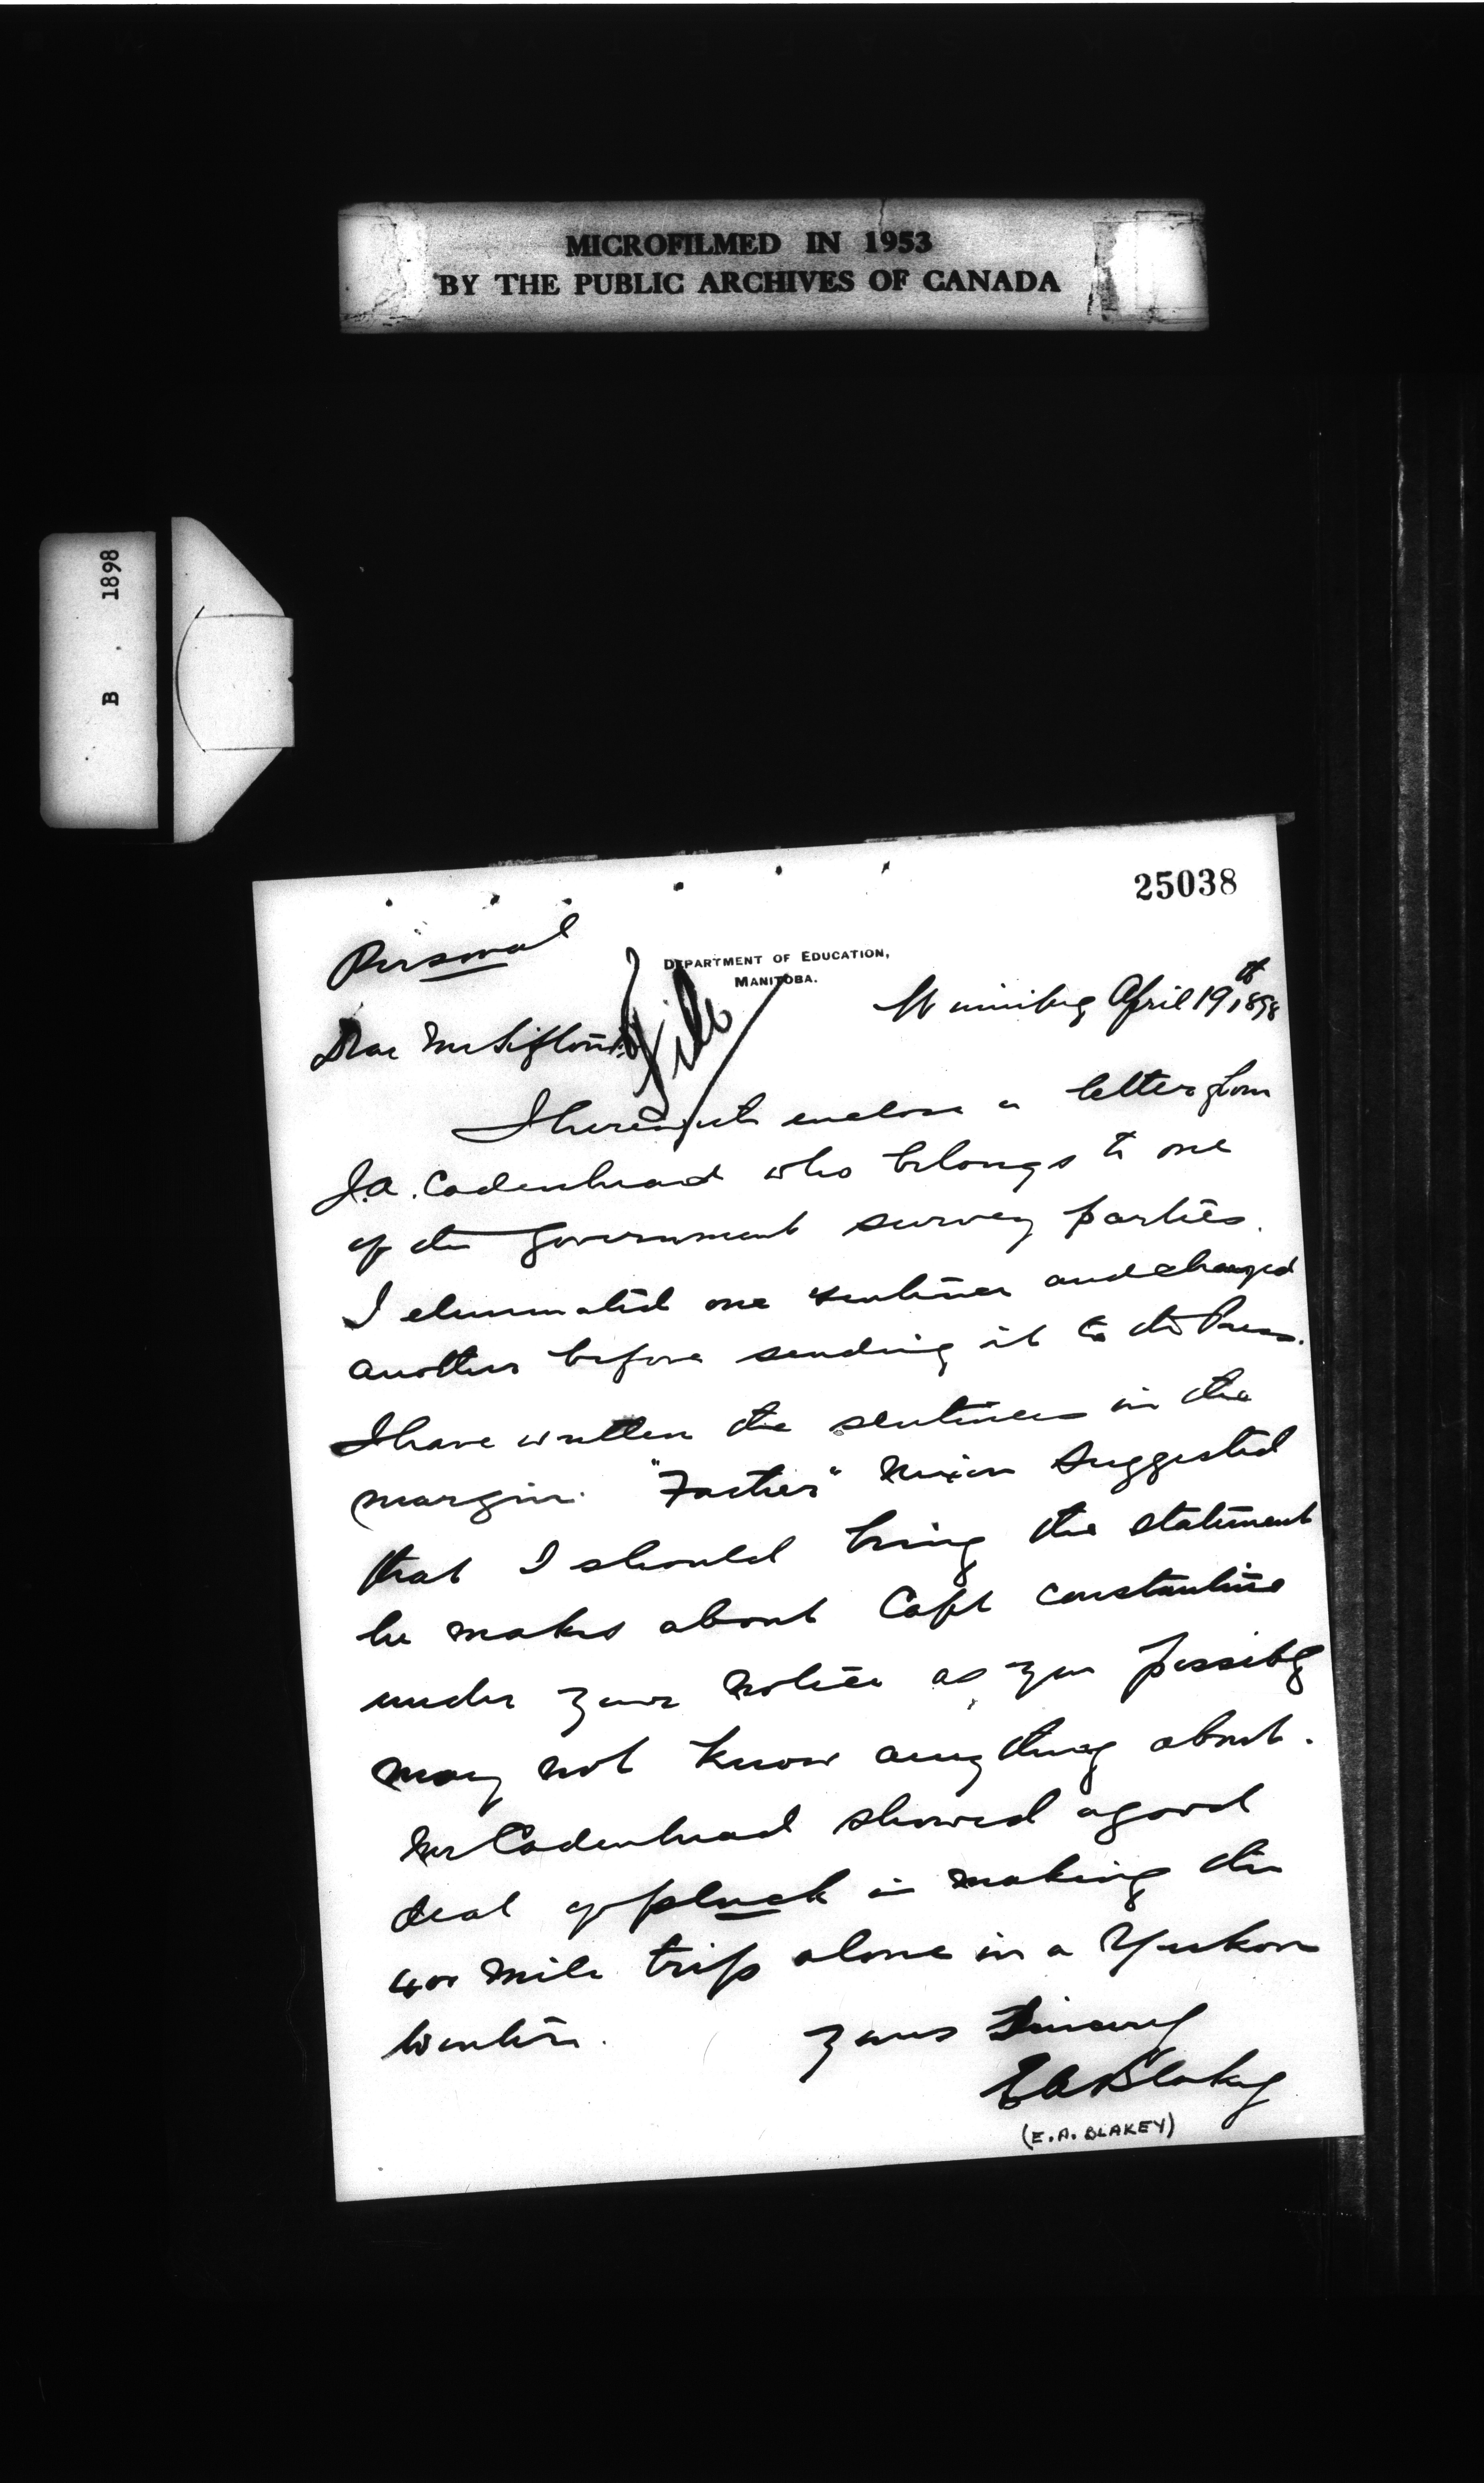 MICROFILMED IN 1953
BY THE PUBLIC ARCHIVES OF CANADA
B . 1898
25038
Personal
DEPARTMENT OF EDUCATION,
MANITOBA.
File
Winnipeg April 19th 1898
Dear Mr Sifton:
I herewith enclose a letter from
J.A. Cadenhead who belongs to one
of the Government survey parties.
I eliminated one sentence and changed
another before sending it to the Press.
I have written the sentences in the
margin. "Father" Nixon suggested
that I should bring the statement
he makes about Capt Constantine
under your notice as you possibly
may not know anything about.
Mr Cadenhead showed a good
deal of pluck in making the
400 mile trip alone in a Yukon
winter.
Yours Sincerely
EABlakey
(E.A. BLAKEY)